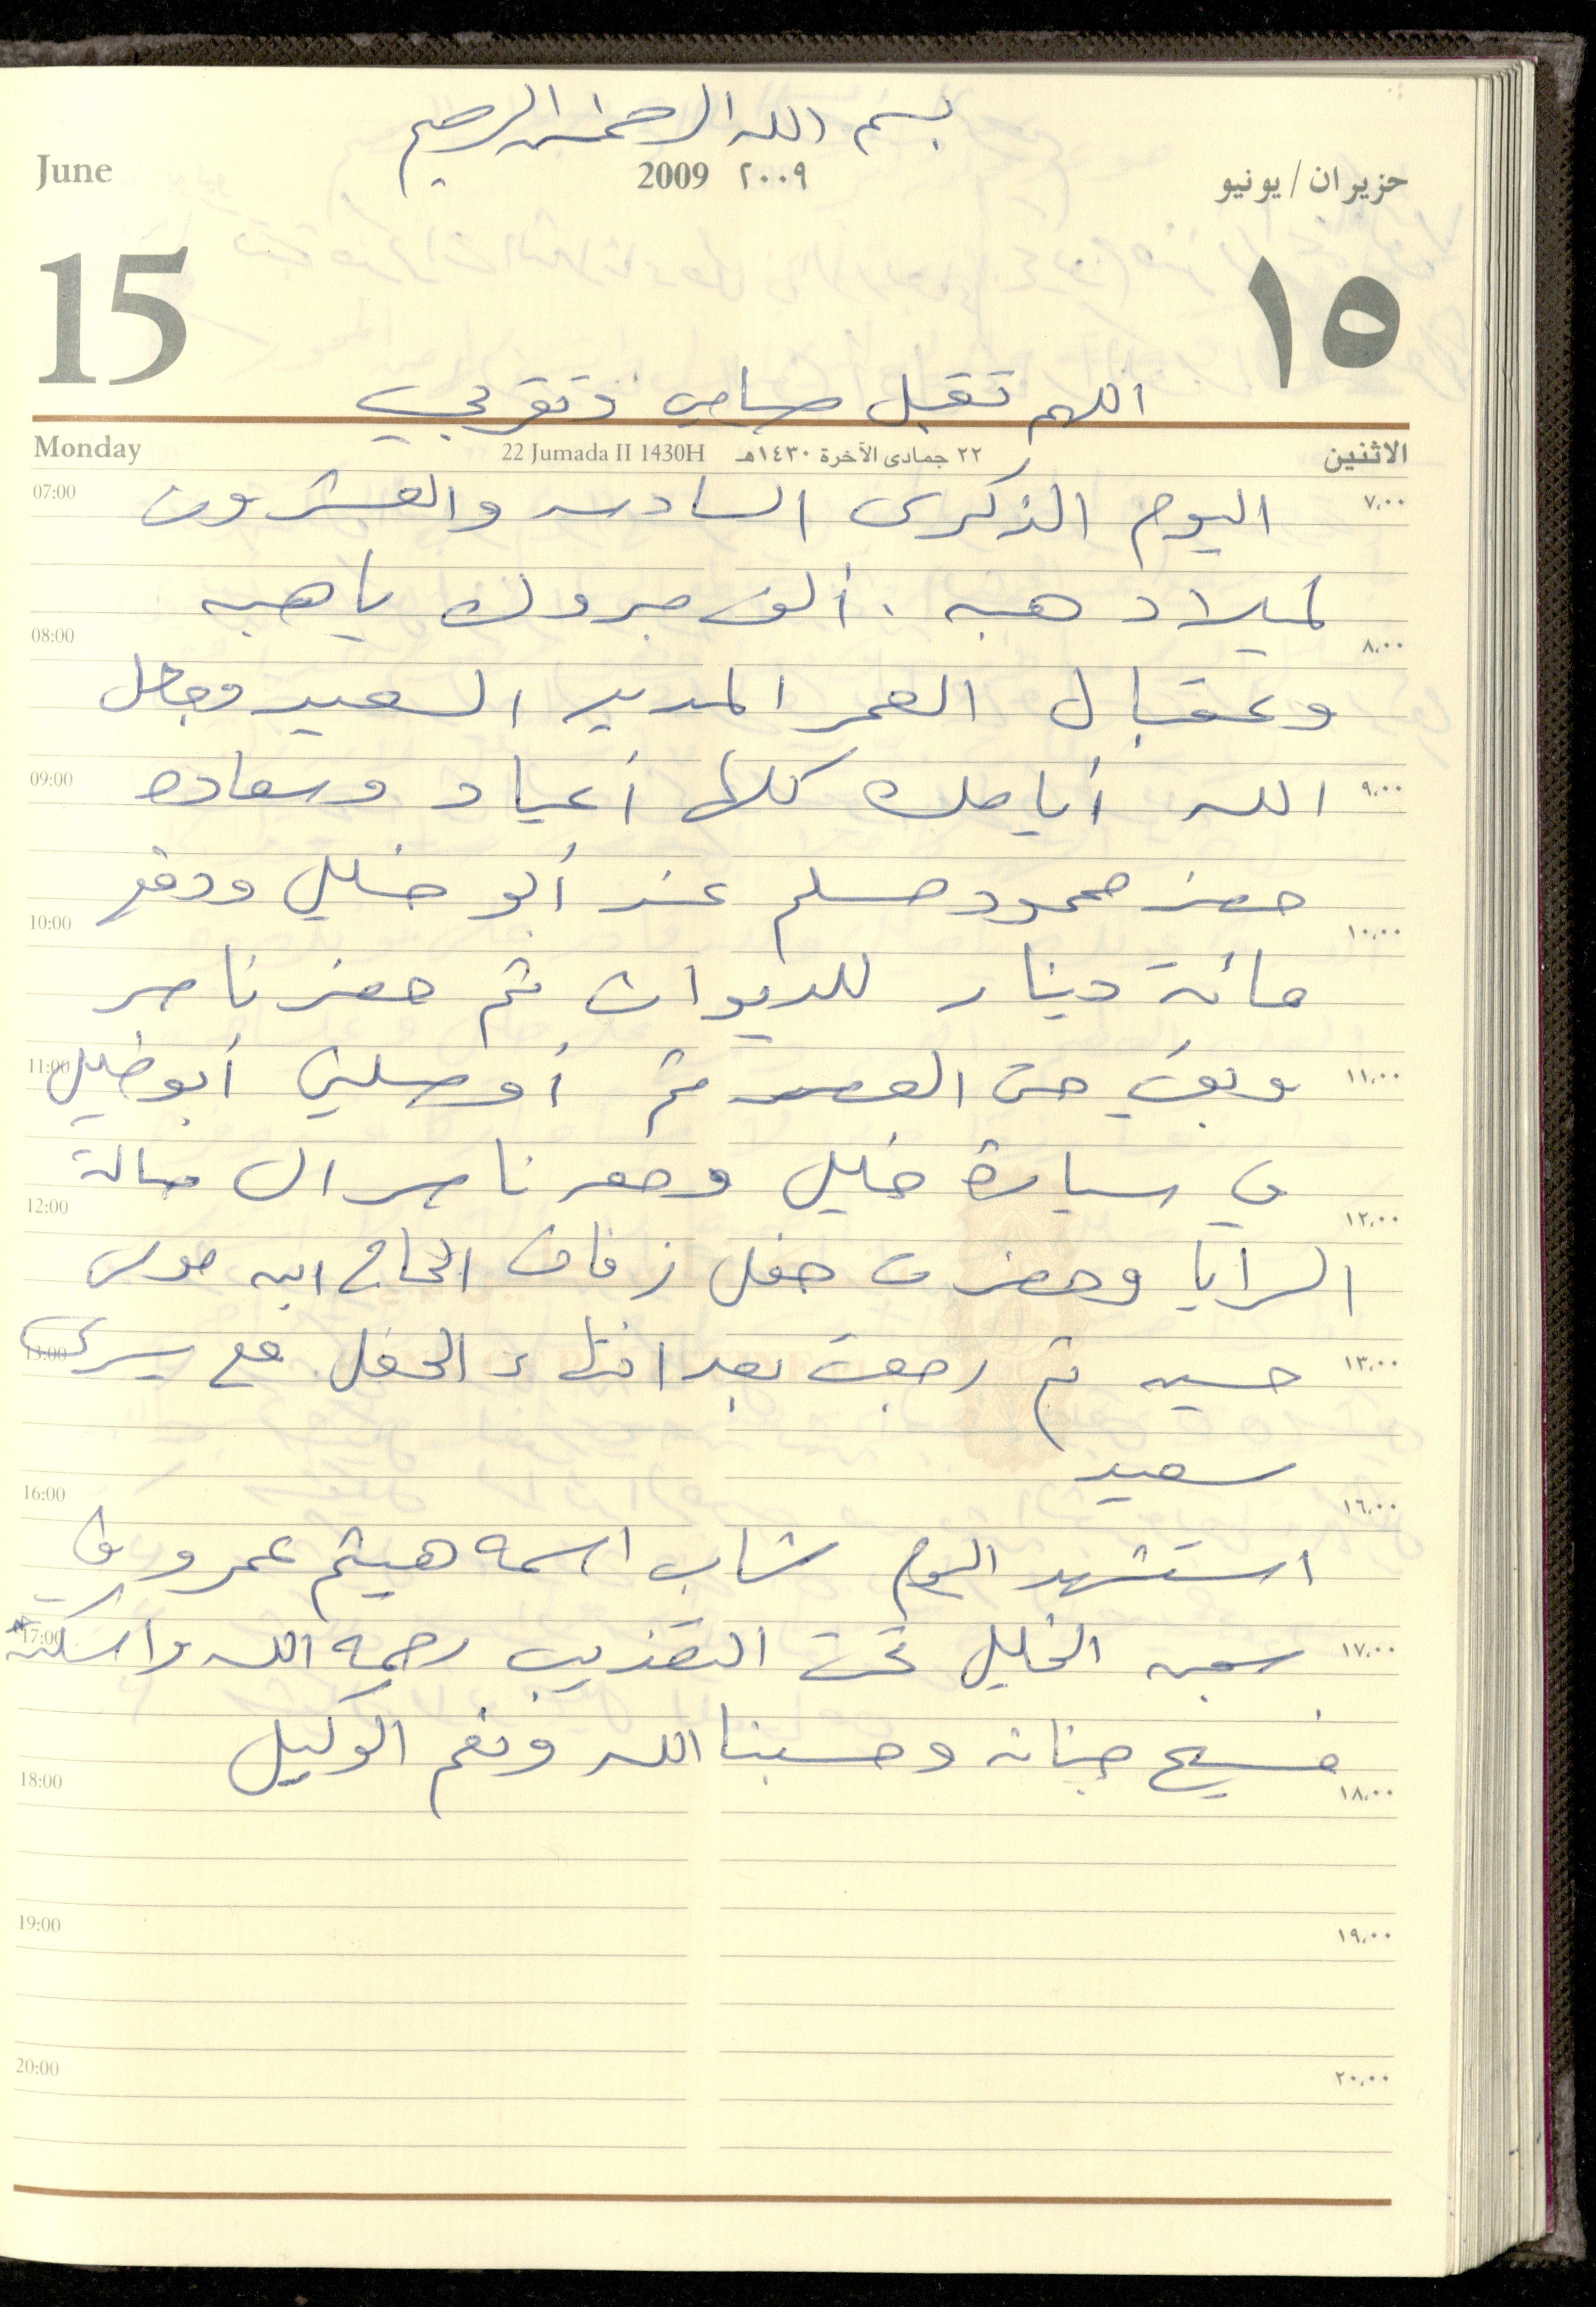 بسم الله الرحمن الرحيم
June 2009 ٢٠٠٩ حزيران / يونيو
15 ١٥
اللهم تقبل صيامي وتقربي
Monday 22 Jumada II 1430H ٢٢ جمادى الآخرة ١٤٣٠هـ الاثنين
07:00 اليوم الذكرى السادسه والعشرون ٧،٠٠
لميلاد هبه . ألف مبروك يا هبه
08:00 ٨،٠٠
وعقبال العمر المديد السعيد وجعل
09:00 الله أيامك كلها أعياد وسعاده ٩،٠٠
حضر محمود مسلم عند أبو خليل ودفع
10:00 ١٠،٠٠
مائة دينار للديوان ثم حضر ناصر
11:00 وبقي حتى العصر ثم أوصلني أبو خليل ١١،٠٠
في سيارة خليل ومعه ناصر الى صالة
12:00 ١٢،٠٠
السرايا وحضرت حفل زفاف الحاج ابن موسى
13:00 حسين ثم رجعت بعد انتهاء الحفل مع يسرى ١٣،٠٠
سعيد
16:00 ١٦،٠٠
استشهد اليوم شاب اسمه هيثم عمرو في
17:00 سجن الخليل تحت التعذيب رحمه الله واسكنه ١٧،٠٠
فسيح جنانه وحسبنا الله ونعم الوكيل
18:00 ١٨،٠٠
19:00 ١٩،٠٠
20:00 ٢٠،٠٠